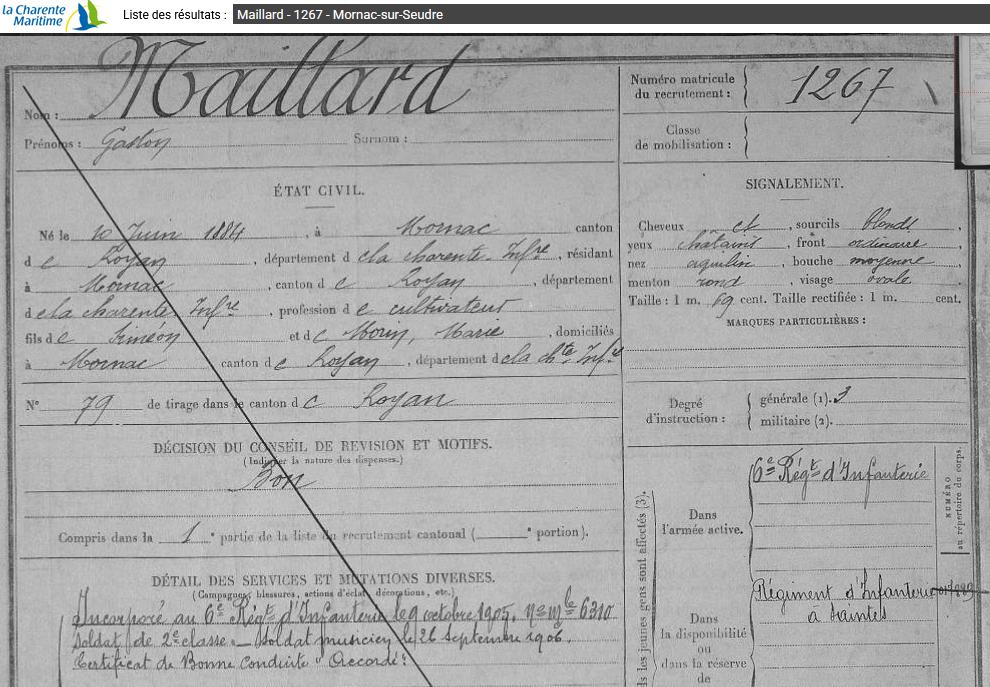 la Charente
Maritime
Liste des résultats : Maillard - 1267 - Mornac-sur-Seudre
Nom : Maillard
Prénoms : Gaston Surnom :
ÉTAT CIVIL.
Né le 10 Juin 1884, à Mornac canton
de Royan, département de la charente Infre, résidant
à Mornac, canton de Royan, département
de la charente Infre, profession de cultivateur
fils de Siméon et de Morin, Marie, domiciliés
à Mornac canton de Royan, département de la chte Infre
N° 79 de tirage dans le canton de Royan
DÉCISION DU CONSEIL DE REVISION ET MOTIFS.
(Indiquer la nature des dispenses.)
Bon
Compris dans la 1e partie de la liste du recrutement cantonal ( e portion).
DÉTAIL DES SERVICES ET MUTATIONS DIVERSES.
(Campagnes, blessures, actions d'éclat, décorations, etc.)
Incorporé au 6e Régt d'Infanterie le 9 octobre 1905, n° mle 6310
Soldat de 2e classe. _ Soldat musicien le 26 Septembre 1906.
Certificat de Bonne Conduite "Accordé".
Numéro matricule
du recrutement : 1267
Classe
de mobilisation :
SIGNALEMENT.
Cheveux et, sourcils blonds,
yeux châtains, front ordinaire,
nez aquilin, bouche moyenne,
menton rond, visage ovale
Taille : 1 m. 69 cent. Taille rectifiée : 1 m. cent.
MARQUES PARTICULIÈRES :
Degré
d'instruction :
générale (1). 3
militaire (2).
Dans
l'armée active.
6e Régt d'Infanterie
NUMÉRO
au répertoire du corps.
s les jeunes gens sont affectés (3).
Dans
la disponibilité
ou
dans la réserve
de
Régiment d'Infanterie
à Saintes